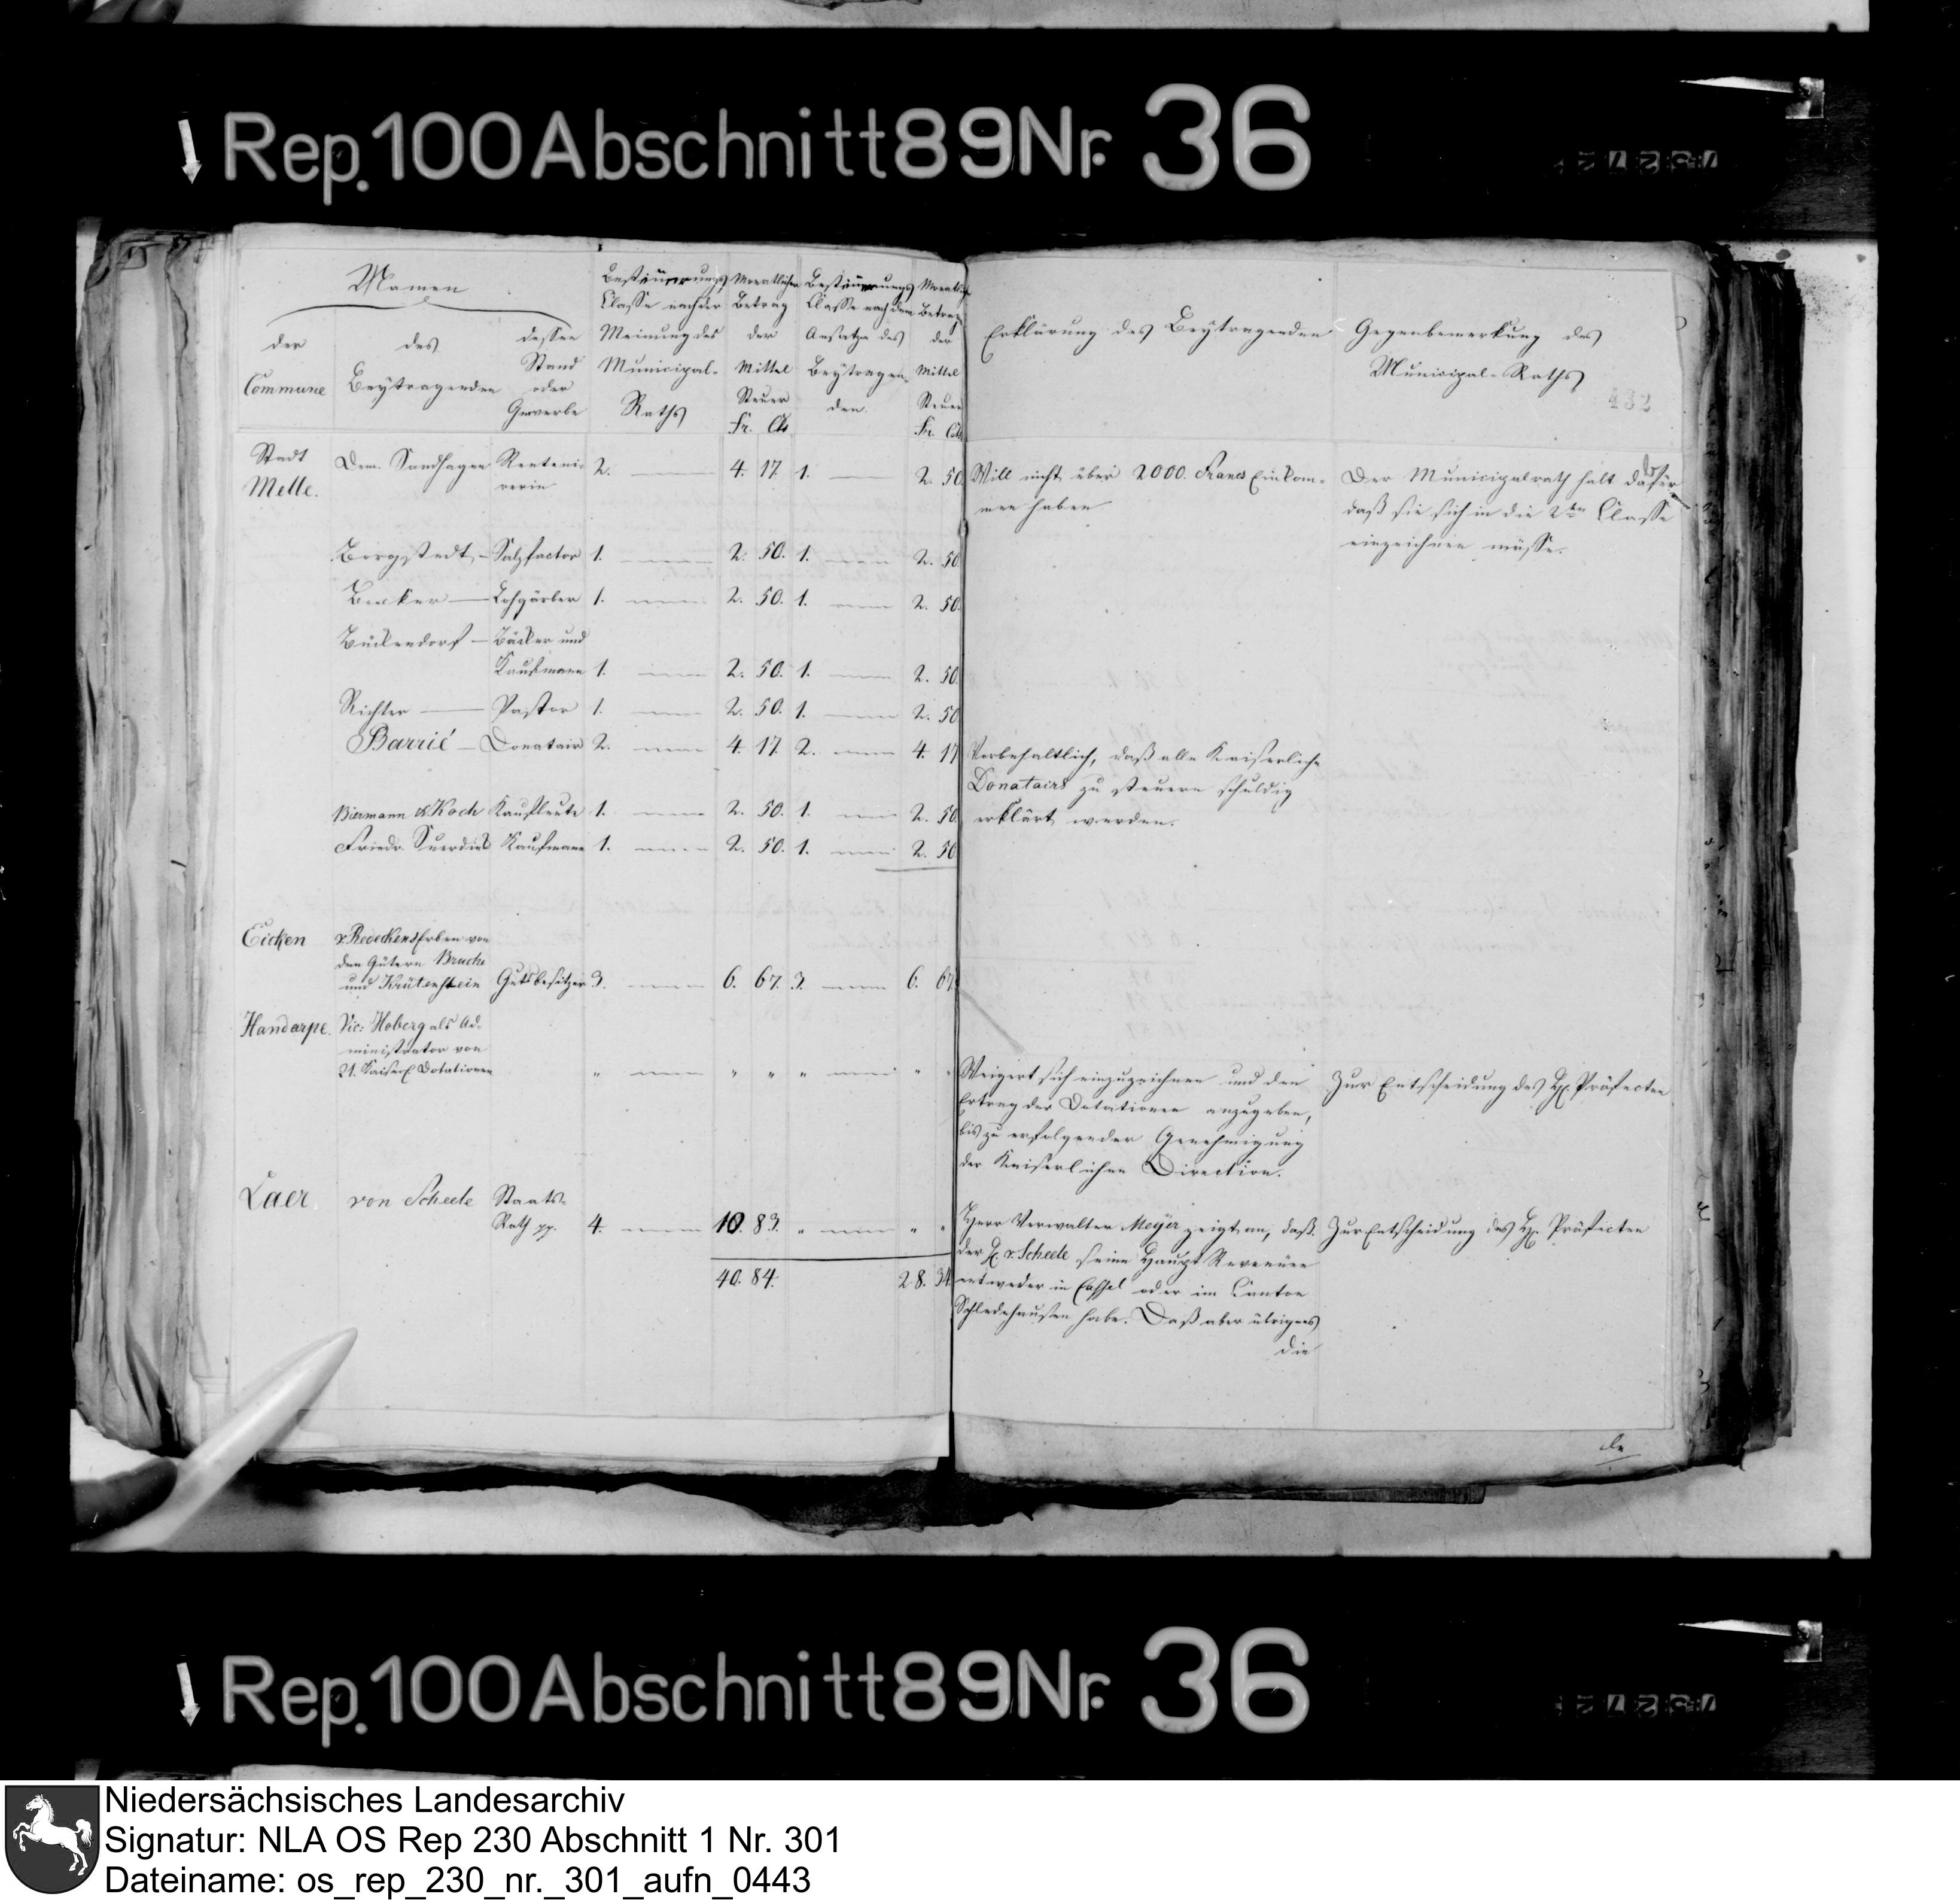 Rep. 100 Abschnitt 89 Nr. 36
Namen
der Commune
des Beytragenden
dessen Stand oder Gewerbe
Besteuerungs Classe nach der Meinung des Municipal-Raths
Monatlicher Betrag der Mittel Steuer Fr. Cts
Besteuerungs Classe nach dem Ansatze des Beytragenden.
Monatlicher Betrag der Mittel Steuer Fr. Cts
Erklärung des Beytragenden
Gegenbemerkung des Municipal-Raths
432
Stadt Melle.
Dem. Sandhagen Renteni-rerin 2. 4. 17. 1. 2. 50.
Will nicht über 2000. Francs Einkom-
men haben
Der Municipalrath hält dafür
daß sie sich in die 2te Classe
einzeichnen müsse.
Borgstedt, - Salzfactor 1. 2. 50. 1. 2. 50
Becker - Lohgärber 1. 2. 50. 1. 2. 50.
Bückendorf - Bäcker und
Kaufmann 1. 2. 50. 1. 2. 50
Richter - Pastor 1. 2. 50. 1. 2. 50
Barrié - Donatair 2. 4. 17. 2. 4. 17
Vorbehaltlich, daß alle Kaiserliche
Donatairs zu steuern schuldig
erklärt werden.
Biermann & Koch Kaufleute 1. 2. 50. 1. 2. 50.
Friedr. Suerdieck Kaufmann 1. 2. 50. 1. 2. 50
Eicken
Erben von
den Gütern Bruche
und Krütenstein Gutsbesitzer 3. 6. 67. 3. 6. 67.
Handarpe. Vic: Hoberg als Ad-
ministrator von
21. Kaiserl. Dotationen " " " " " "
Weigert sich einzuzeichnen und den
Ertrag der Dotationen anzugeben,
bis zu erfolgender Genehmigung
der Kaiserlichen Direction.
Zur Entscheidung des H. Präfecten
Laer von Scheele Staats-
Rath pp. 4. 10. 83. " " "
Herr Verwalter Meyer zeigt an, daß
der H. v. Scheele seine Haupt Revenüen
entweder in Cassel oder im Canton
Schledehausen habe. Daß aber übrigens
die
Zur Entscheidung des H. Präfecten
40. 84. 28. 34.
Rep. 100 Abschnitt 89 Nr. 36
Niedersächsisches Landesarchiv
Signatur: NLA OS Rep 230 Abschnitt 1 Nr. 301
Dateiname: os_rep_230_nr._301_aufn_0443